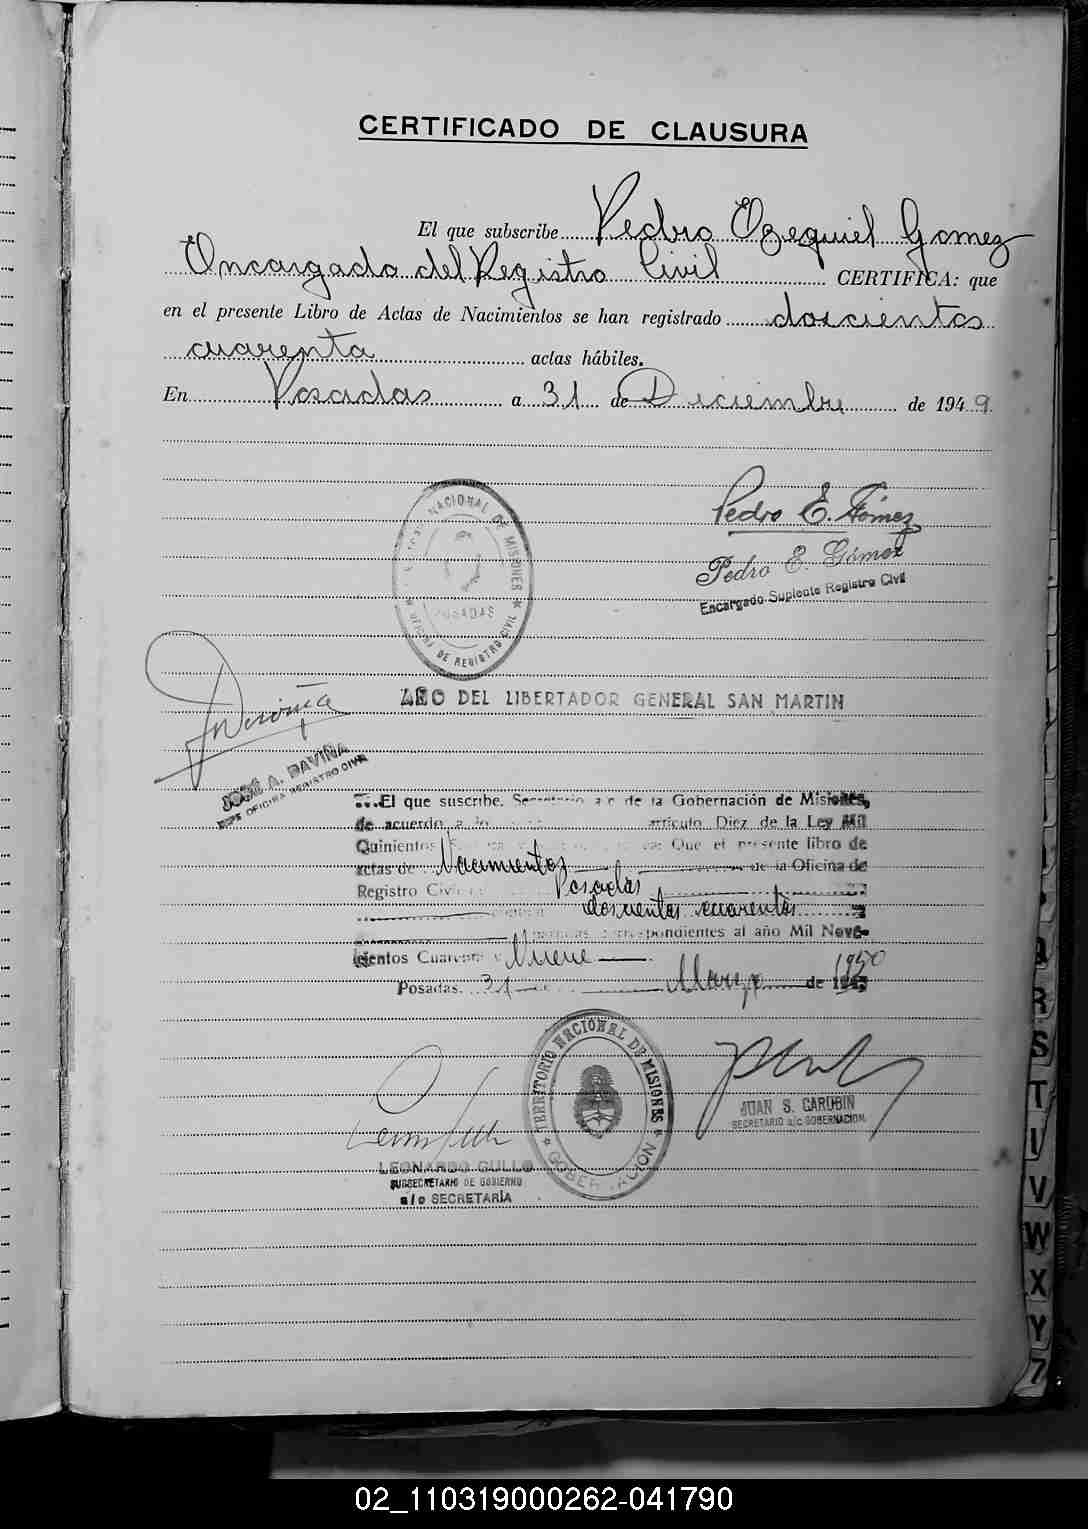 CERTIFICADO DE CLAUSURA
El que subscribe Pedro Ezequiel Gomez
Encargado del Registro Civil CERTIFICA: que
en el presente Libro de Actas de Nacimientos se han registrado doscientos
cuarenta actas hábiles.
En Posadas a 31 de Diciembre de 1949
NACIONAL DE MISIONES
POSADAS
OFICINA DE REGISTRO CIVIL
Pedro E. Gómez
Pedro E. Gómez
Encargado Suplente Registro Civil
AÑO DEL LIBERTADOR GENERAL SAN MARTIN
JOSÉ A. DAVIÑA
JEFE OFICINA REGISTRO CIVIL
El que suscribe. Secretario a/c de la Gobernación de Misiones,
de acuerdo a lo artículo Diez de la Ley Mil
Quinientos Que el presente libro de
actas de Nacimientos de la Oficina de
Registro Civil Posadas
doscientos cuarenta
correspondientes al año Mil Nove-
cientos Cuarenta y Nueve
Posadas. 31 Marzo de 1950
TERRITORIO NACIONAL DE MISIONES
GOBERNACIÓN
JUAN S. CARUBIN
SECRETARIO a/c GOBERNACION
LEONARDO GULLO
SUBSECRETARIO DE GOBIERNO
a/c SECRETARÍA
R
S
T
V
W
X
Y
Z
02_110319000262-041790